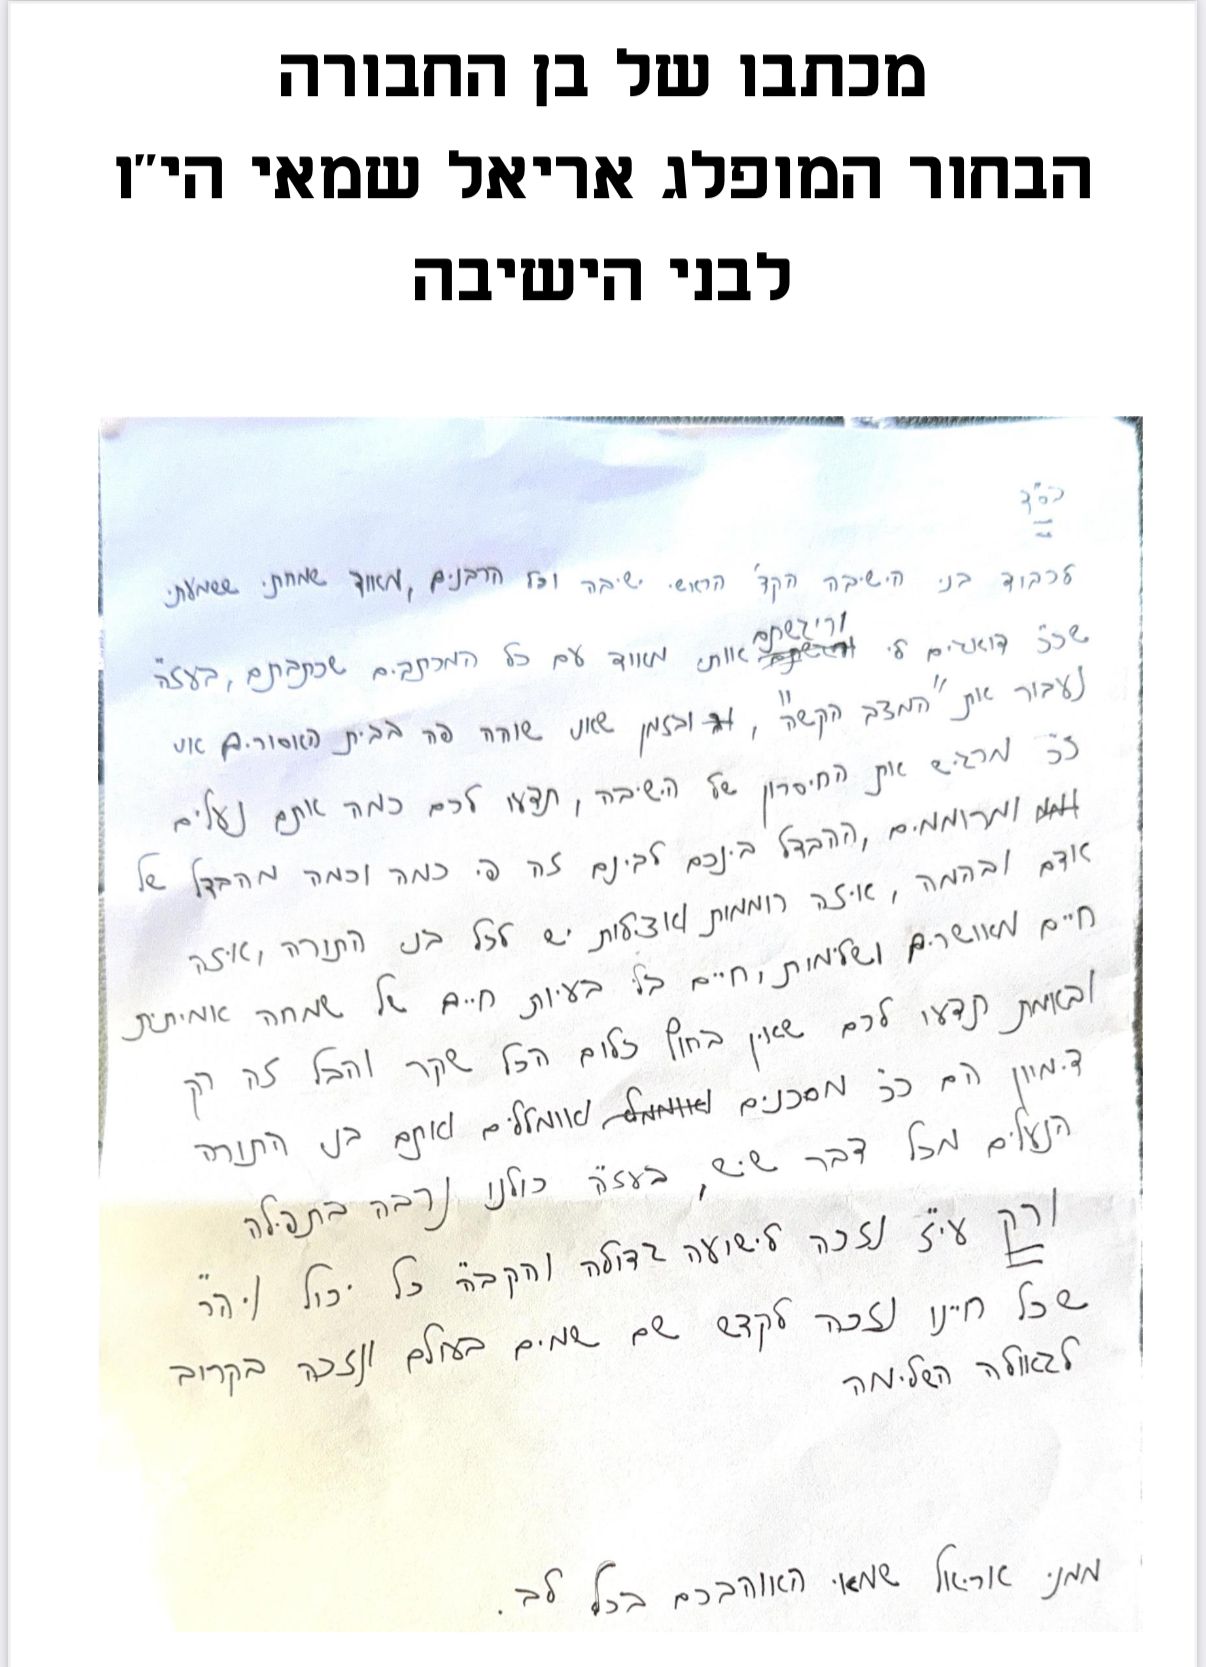 מכתבו של בן החבורה
הבחור המופלג אריאל שמאי הי״ו
לבני הישיבה
בס"ד
לכבוד בני הישיבה הקד' הראשי ישיבה וכל הרבנים, מאווד שמחתי ששמעתי
שכ"כ דואגים לי וריגשתם אותי מאווד עם כל המכתבים שכתבתם, בעז"ה
נעבור את "המצב הקשה", ובזמן שאני שוהה פה בבית האסורים אני
כ"כ מרגיש את החיסרון של הישיבה, תדעו לכם כמה אתם נעלים
ומרוממים, ההבדל ביניכם לבינם זה פי כמה וכמה מהבדל של
אדם ובהמה, איזה רוממות ואצילות יש לכל בני התורה, איזה
חיים מאושרים ושלימות, חיים בלי בעיות חיים של שמחה אמיתית
ובאמת תדעו לכם שאין בחוץ כלום הכל שקר והבל זה רק
דימיון הם כ"כ מסכנים ואומללים ואתם בני התורה
הנעלים מכל דבר שיש, בעז"ה כולנו נרבה בתפילה
ורק עי"ז נזכה לישועה גדולה והקב"ה כל יכול ויה"ר
שכל חיינו נזכה לקדש שם שמים בעולם ונזכה בקרוב
לגאולה השלימה
ממני אריאל שמאי האווהבכם בכל לב.